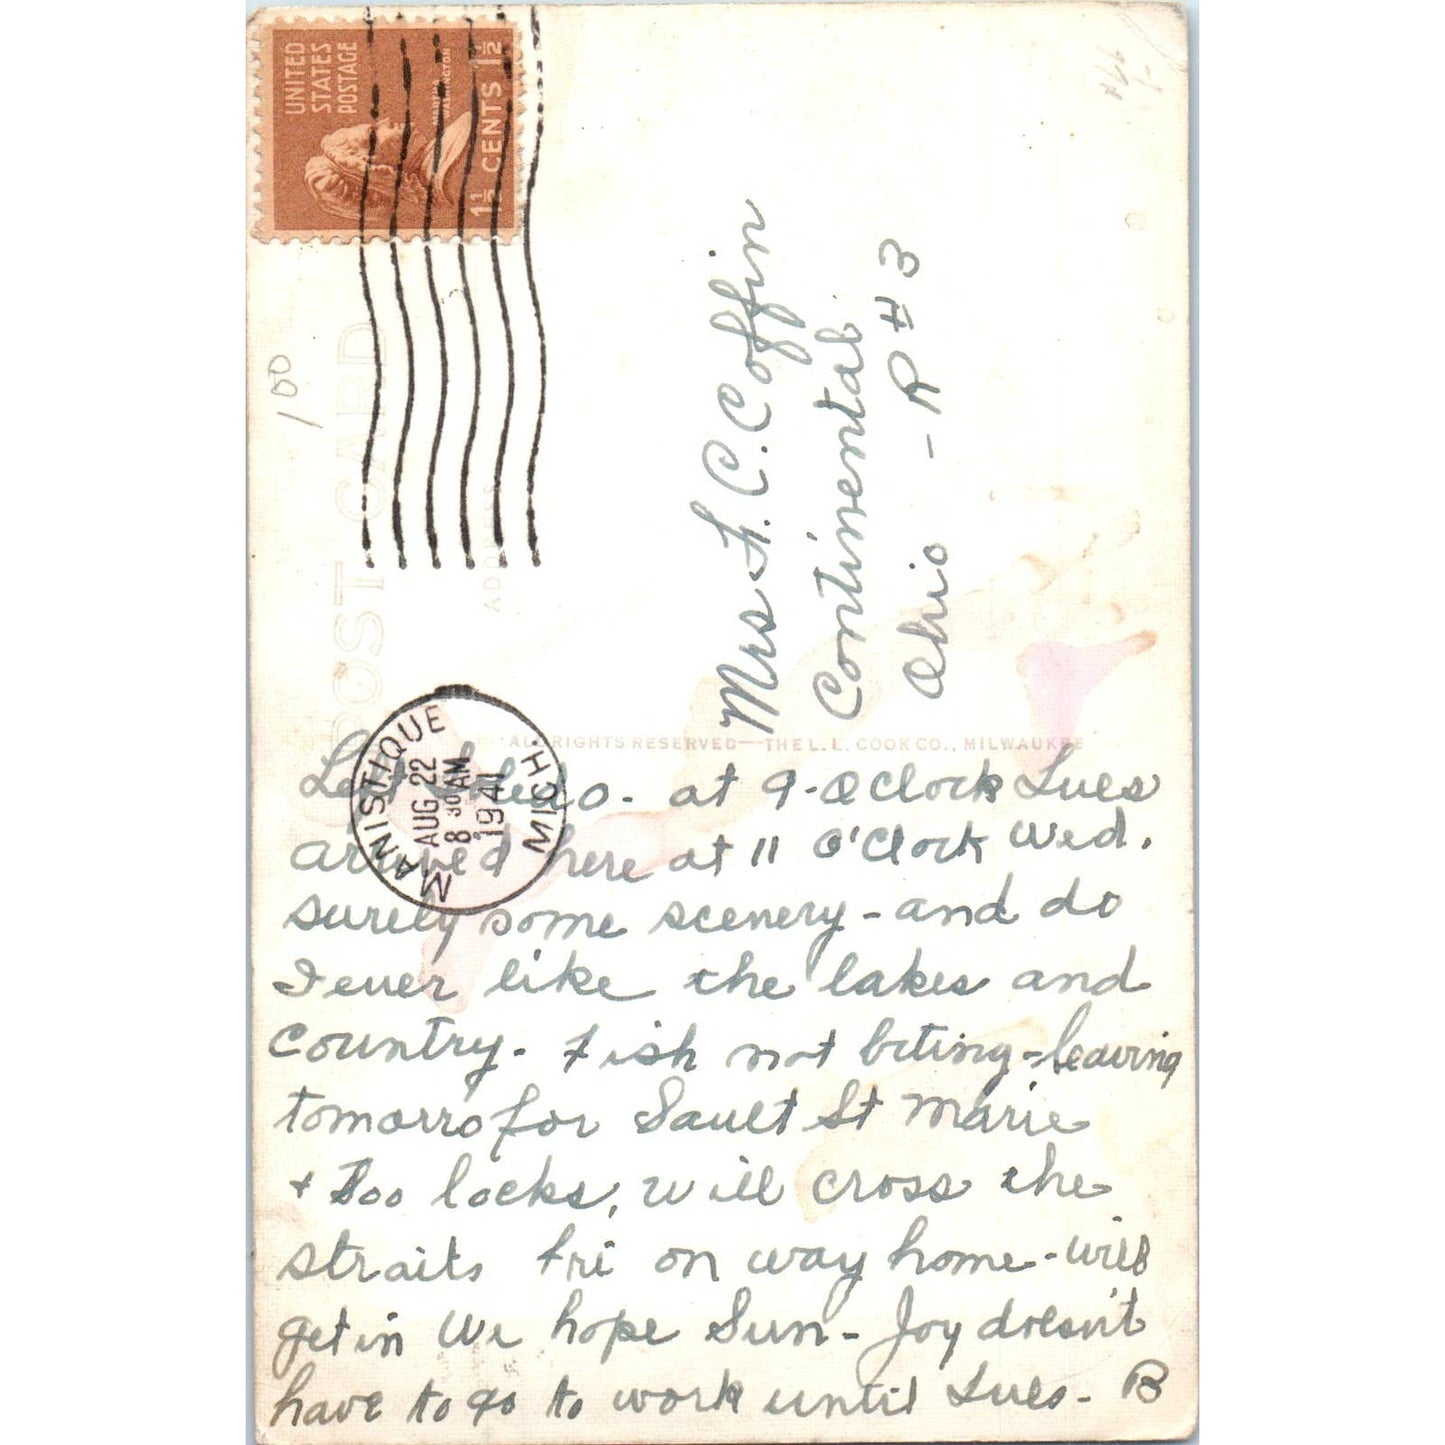 UNITED
STATES
POSTAGE
MARTHA
WASHINGTON
1½ CENTS 1½
1 00
POST CARD
ADDRESS
Mrs F. C. Coffin
Continental
Ohio - R #3
ALL RIGHTS RESERVED—THE L. L. COOK CO., MILWAUKEE
MANISTIQUE
AUG 22
8 30 AM
1941
MICH.
Left Toledo - at 9-OClock Tues
arrived here at 11 O'Clock Wed.
surely some scenery - and do
I ever like the lakes and
Country - Fish not biting - leaving
tomorro for Sault St Marie
+ Soo locks, will cross the
straits Fri on way home - will
get in We hope Sun - Joy doesn't
have to go to work until Tues - B